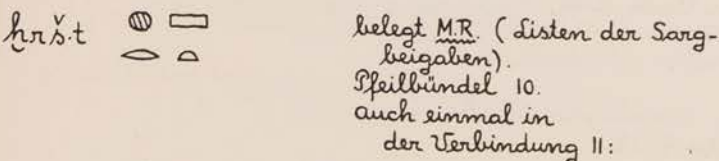 ḫrš.t 𓐍𓂋𓈙𓏏
belegt M.R. (Listen der Sarg-
beigaben).
Pfeilbündel 10.
auch einmal in
der Verbindung 11: